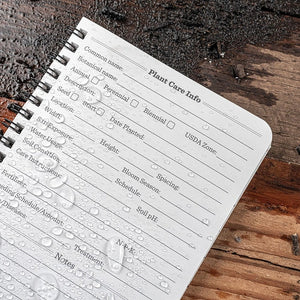 Plant Care Info
Common name:
Botanical name:
Animal: Perennial Biennial
Description:
Seed Start Date Planted: USDA Zone:
Location:
Width: Height: Spacing:
Sun Exposure: Bloom Season:
Water Usage: Schedule:
Soil Condition: Soil pH:
Care Instructions:
Fertilizer:
Feeding Schedule/Amount:
Diseases: Treatment:
Notes